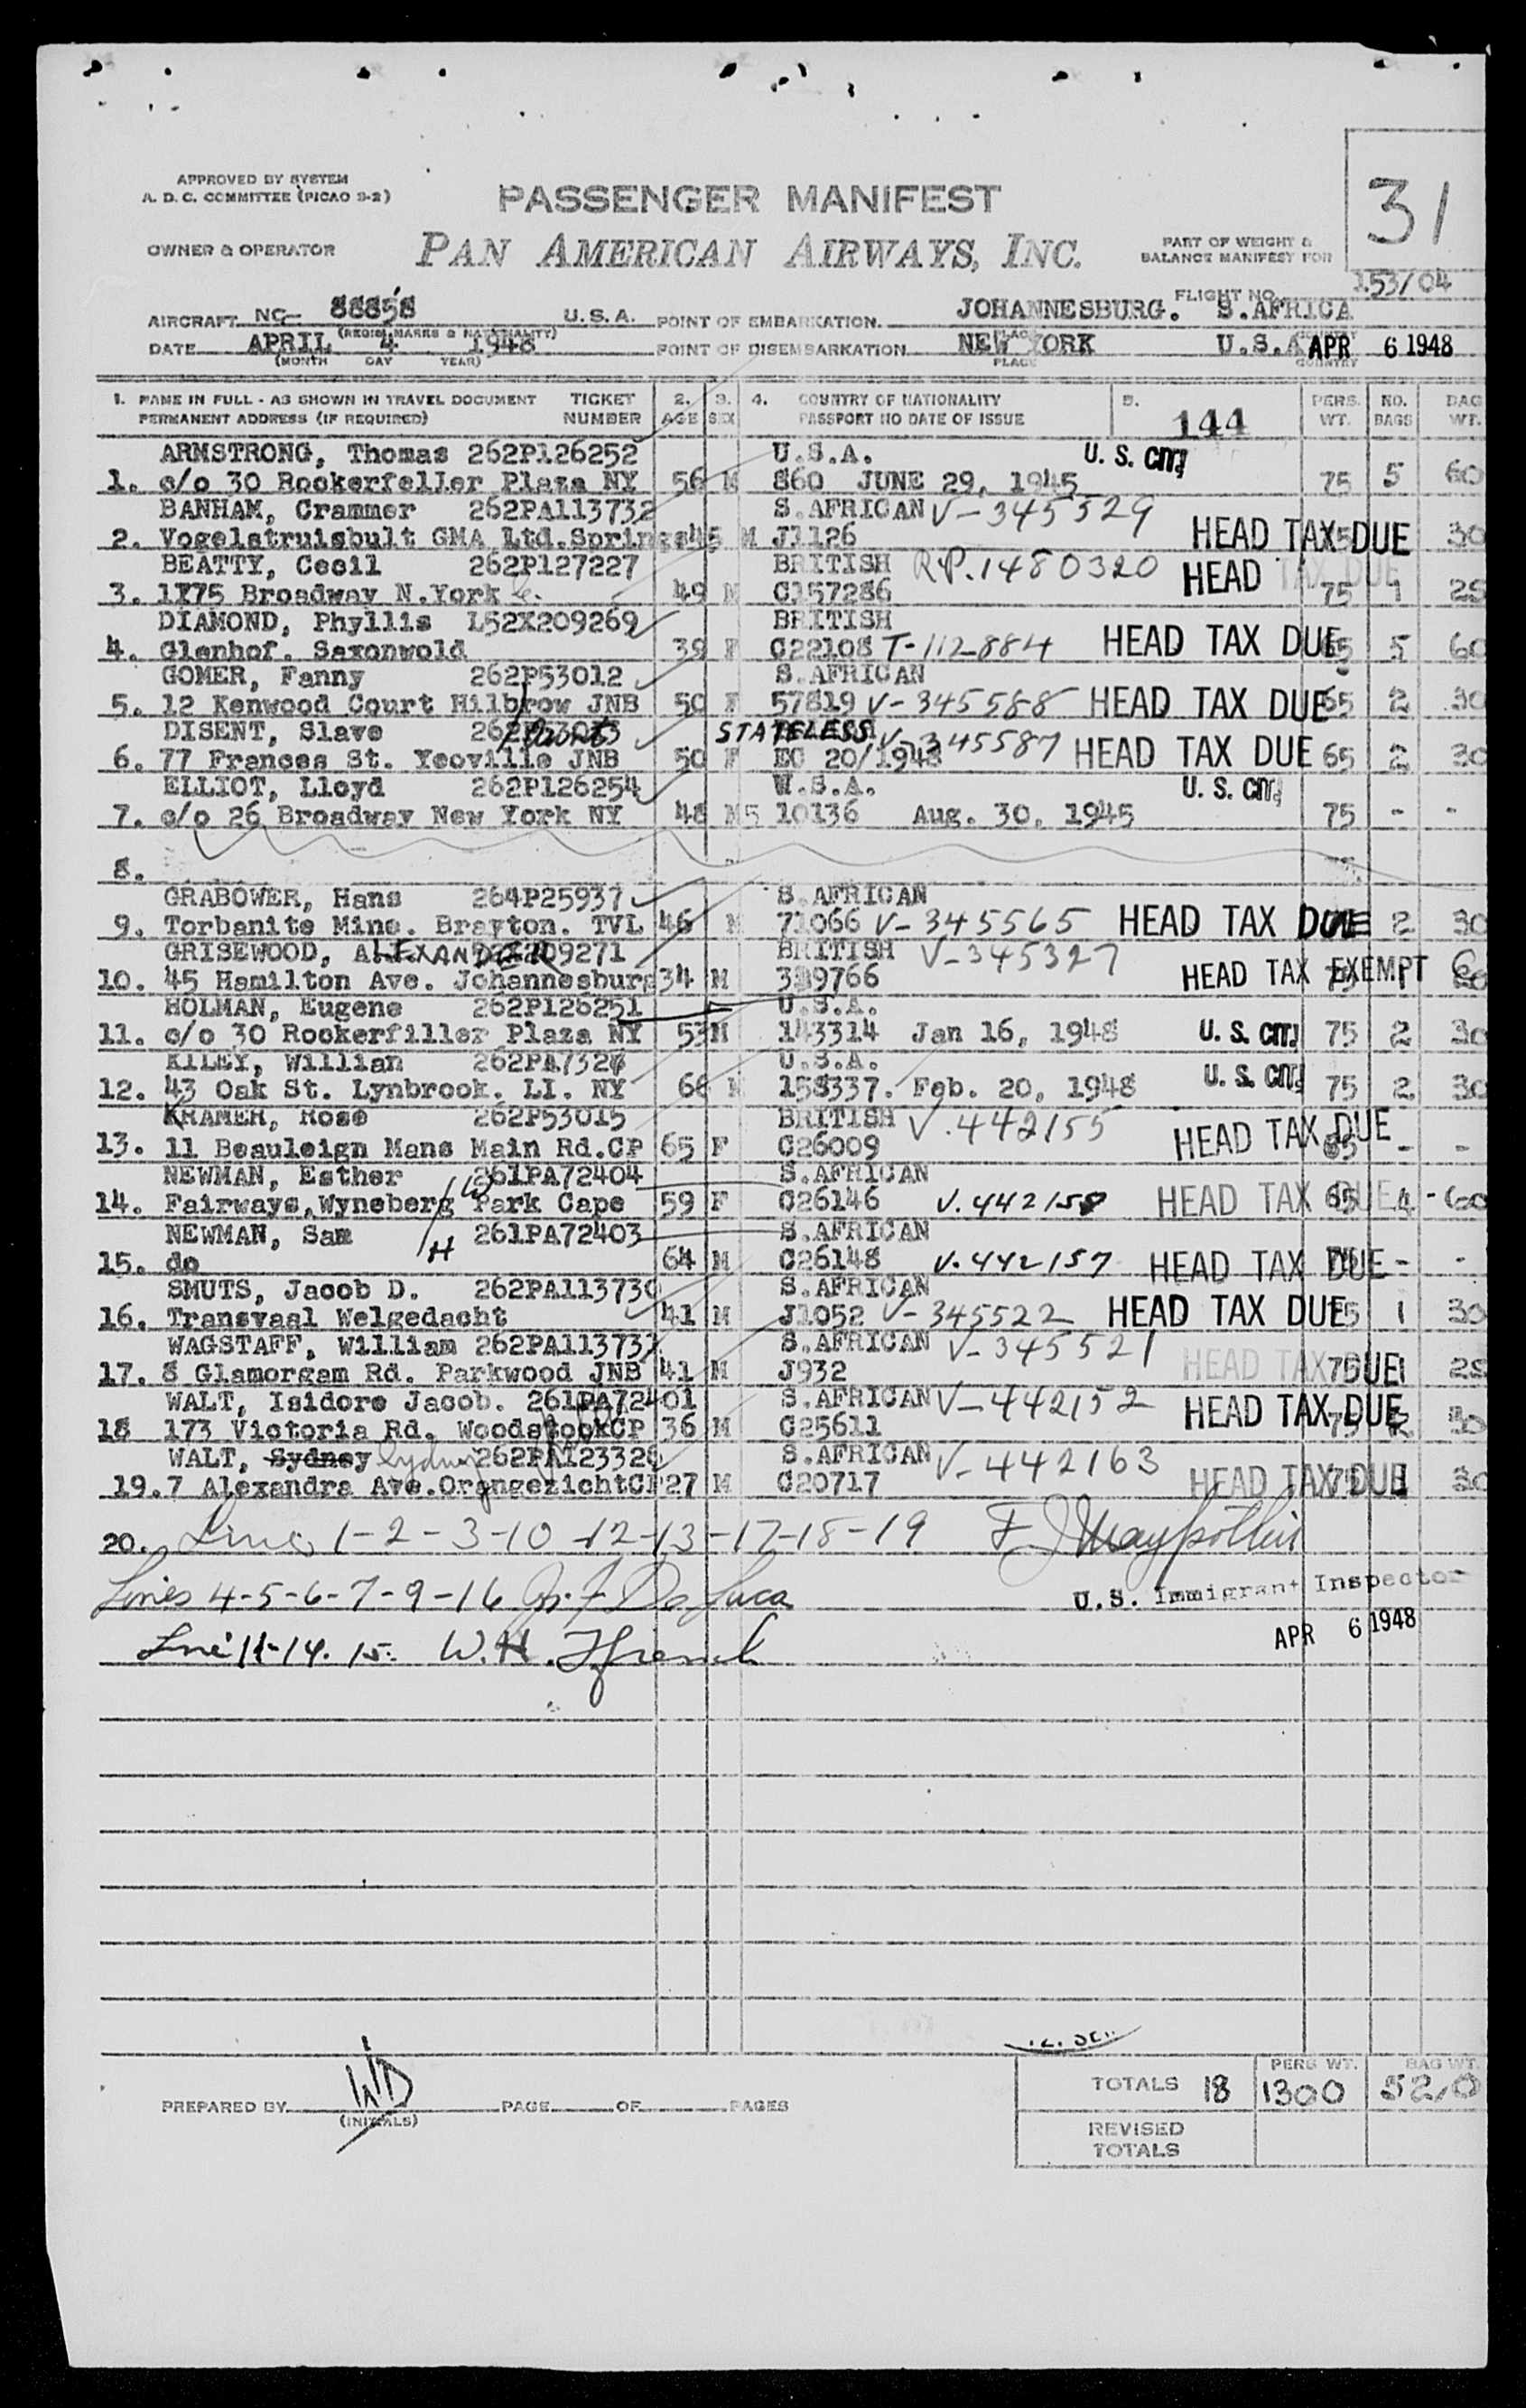 APPROVED BY SYSTEM
A. D. C. COMMITTEE (PICAO S-2)
PASSENGER MANIFEST
31
OWNER & OPERATOR
PAN AMERICAN AIRWAYS, INC.
PART OF WEIGHT &
BALANCE MANIFEST FOR
FLIGHT NO. 153/04
AIRCRAFT NC- 88858 U.S.A. POINT OF EMBARKATION JOHANNESBURG. S.AFRICA
(REGIS. MARKS & NATIONALITY) PLACE COUNTRY
DATE APRIL 4 1948 POINT OF DISEMBARKATION NEW YORK U.S.A APR 6 1948
(MONTH DAY YEAR) PLACE COUNTRY
1. NAME IN FULL - AS SHOWN IN TRAVEL DOCUMENT TICKET 2. 3. 4. COUNTRY OF NATIONALITY 5. 144 PERS. NO. BAG
PERMANENT ADDRESS (IF REQUIRED) NUMBER AGE SEX PASSPORT NO DATE OF ISSUE WT. BAGS WT.
ARMSTRONG, Thomas 262P126252 U.S.A. U. S. CIT
1. c/o 30 Rockerfeller Plaza NY 56 M 860 JUNE 29, 1945 75 5 60
BANHAM, Crammer 262PA113732 S.AFRICAN V-345529
2. Vogelstruisbult GMA Ltd.Springs 45 M J1126 HEAD TAX DUE 30
BEATTY, Cecil 262P127227 BRITISH R.P.1480320 HEAD TAX DUE
3. 1775 Broadway N.York 49 M C157286 75 1 25
DIAMOND, Phyllis L52X209269 BRITISH
4. Glenhof. Saxonwold 39 F C22108 T-112884 HEAD TAX DUE 65 5 60
GOMER, Fanny 262P53012 S.AFRICAN
5. 12 Kenwood Court Hilbrow JNB 50 F 57819 V-345588 HEAD TAX DUE 65 2 30
DISENT, Slave 262P53013 STATELESS V-345587
6. 77 Frances St. Yeoville JNB 50 F EC 20/1948 HEAD TAX DUE 65 2 30
ELLIOT, Lloyd 262P126254 U.S.A. U. S. CIT
7. c/o 26 Broadway New York NY 48 M 10136 Aug. 30, 1945 75 - -
8.
GRABOWER, Hans 264P25937 S.AFRICAN
9. Torbanite Mine. Brayton. TVL 46 M 71066 V-345565 HEAD TAX DUE 2 30
GRISEWOOD, ALEXANDER 209271 BRITISH V-345327
10. 45 Hamilton Ave. Johannesburg 34 M 339766 HEAD TAX EXEMPT
HOLMAN, Eugene 262P126251 U.S.A.
11. c/o 30 Rockerfiller Plaza NY 53 M 143314 Jan 16, 1948 U. S. CIT 75 2 30
KILEY, Willian 262PA7326 U.S.A.
12. 43 Oak St. Lynbrook. LI. NY 66 M 158337. Feb. 20, 1948 U. S. CIT 75 2 30
KRAMER, Rose 262P53015 BRITISH V.442155
13. 11 Beauleign Mans Main Rd.CP 65 F C26009 HEAD TAX DUE 65 - -
NEWMAN, Esther 261PA72404 S.AFRICAN
14. Fairways,Wyneberg Park Cape W 59 F C26146 V.442158 HEAD TAX DUE 65 4 -60
NEWMAN, Sam 261PA72403 S.AFRICAN
15. do H 64 M C26148 V.442157 HEAD TAX DUE - -
SMUTS, Jacob D. 262PA113730 S.AFRICAN
16. Transvaal Welgedacht 41 M J1052 V-345522 HEAD TAX DUE 75 1 30
WAGSTAFF, William 262PA113731 S.AFRICAN V-345521
17. 8 Glamorgam Rd. Parkwood JNB 41 M J932 HEAD TAX DUE 75 1 25
WALT, Isidore Jacob. 261PA72401 S.AFRICAN V-442152
18 173 Victoria Rd. WoodstockCP 36 M C25611 HEAD TAX DUE 75 2 30
WALT, Sydney Sydney 262PA123326 S.AFRICAN V-442163
19. 7 Alexandra Ave.OrangezichtCP 27 M C20717 HEAD TAX DUE 75 1 30
20. Lines 1-2-3-10-12-13-17-18-19
Lines 4-5-6-7-9-16 Jos. F. De Luca U.S. Immigrant Inspector
Line 11-14. 15. W.H. APR 6 1948
TOTALS 18 PERS WT. 1300 BAG WT. 520
PREPARED BY WD PAGE OF PAGES
(INITIALS)
REVISED
TOTALS